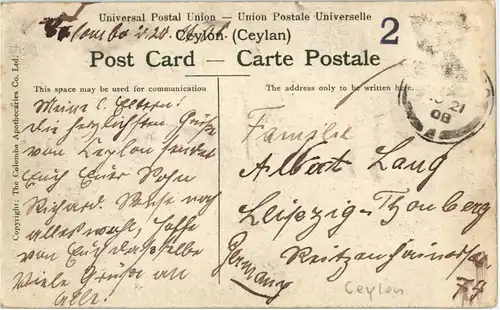 Universal Postal Union — Union Postale Universelle
Colombo
Ceylon (Ceylan)
2
Post Card — Carte Postale
This space may be used for communication
The address only to be written here.
Copyright: The Colombo Apothecaries Co. Ltd.
Meine l. Eltern!
Die herzlichsten Grüße
von Ceylon sendet
Euch Euer Sohn
Richard.
alles wohl, hoffe
von Euch dasselbe
Viele Grüße an
Alle!
21
08
Familie
Albert Lang
Leipzig-Thonberg
Reitzenhainerstr
79
Germany
Ceylon